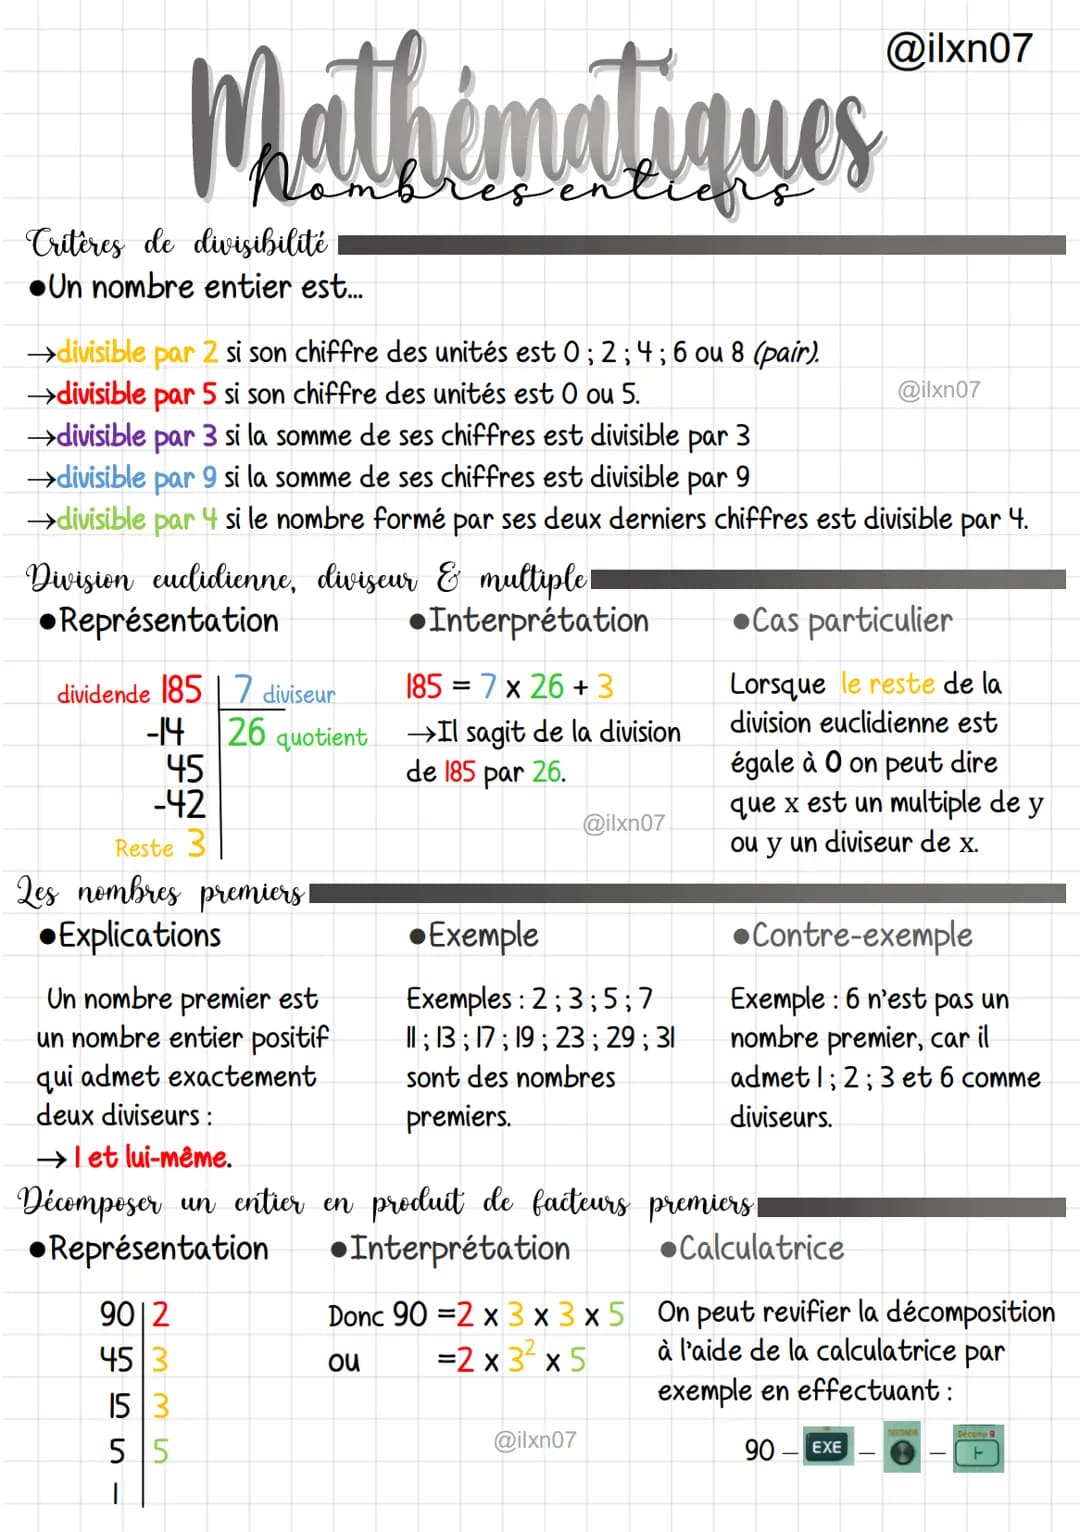 @ilxn07
Mathématiques
Nombres entiers
Critères de divisibilité
●Un nombre entier est...
→divisible par 2 si son chiffre des unités est 0 ; 2 ; 4 ; 6 ou 8 (pair).
→divisible par 5 si son chiffre des unités est 0 ou 5.
@ilxn07
→divisible par 3 si la somme de ses chiffres est divisible par 3
→divisible par 9 si la somme de ses chiffres est divisible par 9
→divisible par 4 si le nombre formé par ses deux derniers chiffres est divisible par 4.
Division euclidienne, diviseur & multiple
●Représentation
dividende 185 | 7 diviseur
-14 | 26 quotient
45
-42
Reste 3
●Interprétation
185 = 7 x 26 + 3
→Il sagit de la division
de 185 par 26.
@ilxn07
●Cas particulier
Lorsque le reste de la
division euclidienne est
égale à 0 on peut dire
que x est un multiple de y
ou y un diviseur de x.
Les nombres premiers
●Explications
Un nombre premier est
un nombre entier positif
qui admet exactement
deux diviseurs :
→ 1 et lui-même.
●Exemple
Exemples : 2 ; 3 ; 5 ; 7
11 ; 13 ; 17 ; 19 ; 23 ; 29 ; 31
sont des nombres
premiers.
●Contre-exemple
Exemple : 6 n'est pas un
nombre premier, car il
admet 1 ; 2 ; 3 et 6 comme
diviseurs.
Décomposer un entier en produit de facteurs premiers
●Représentation
90 | 2
45 | 3
15 | 3
5 | 5
1
●Interprétation
Donc 90 =2 x 3 x 3 x 5
ou =2 x 3² x 5
@ilxn07
●Calculatrice
On peut revifier la décomposition
à l'aide de la calculatrice par
exemple en effectuant :
90 – EXE – SECONDE – Décomp